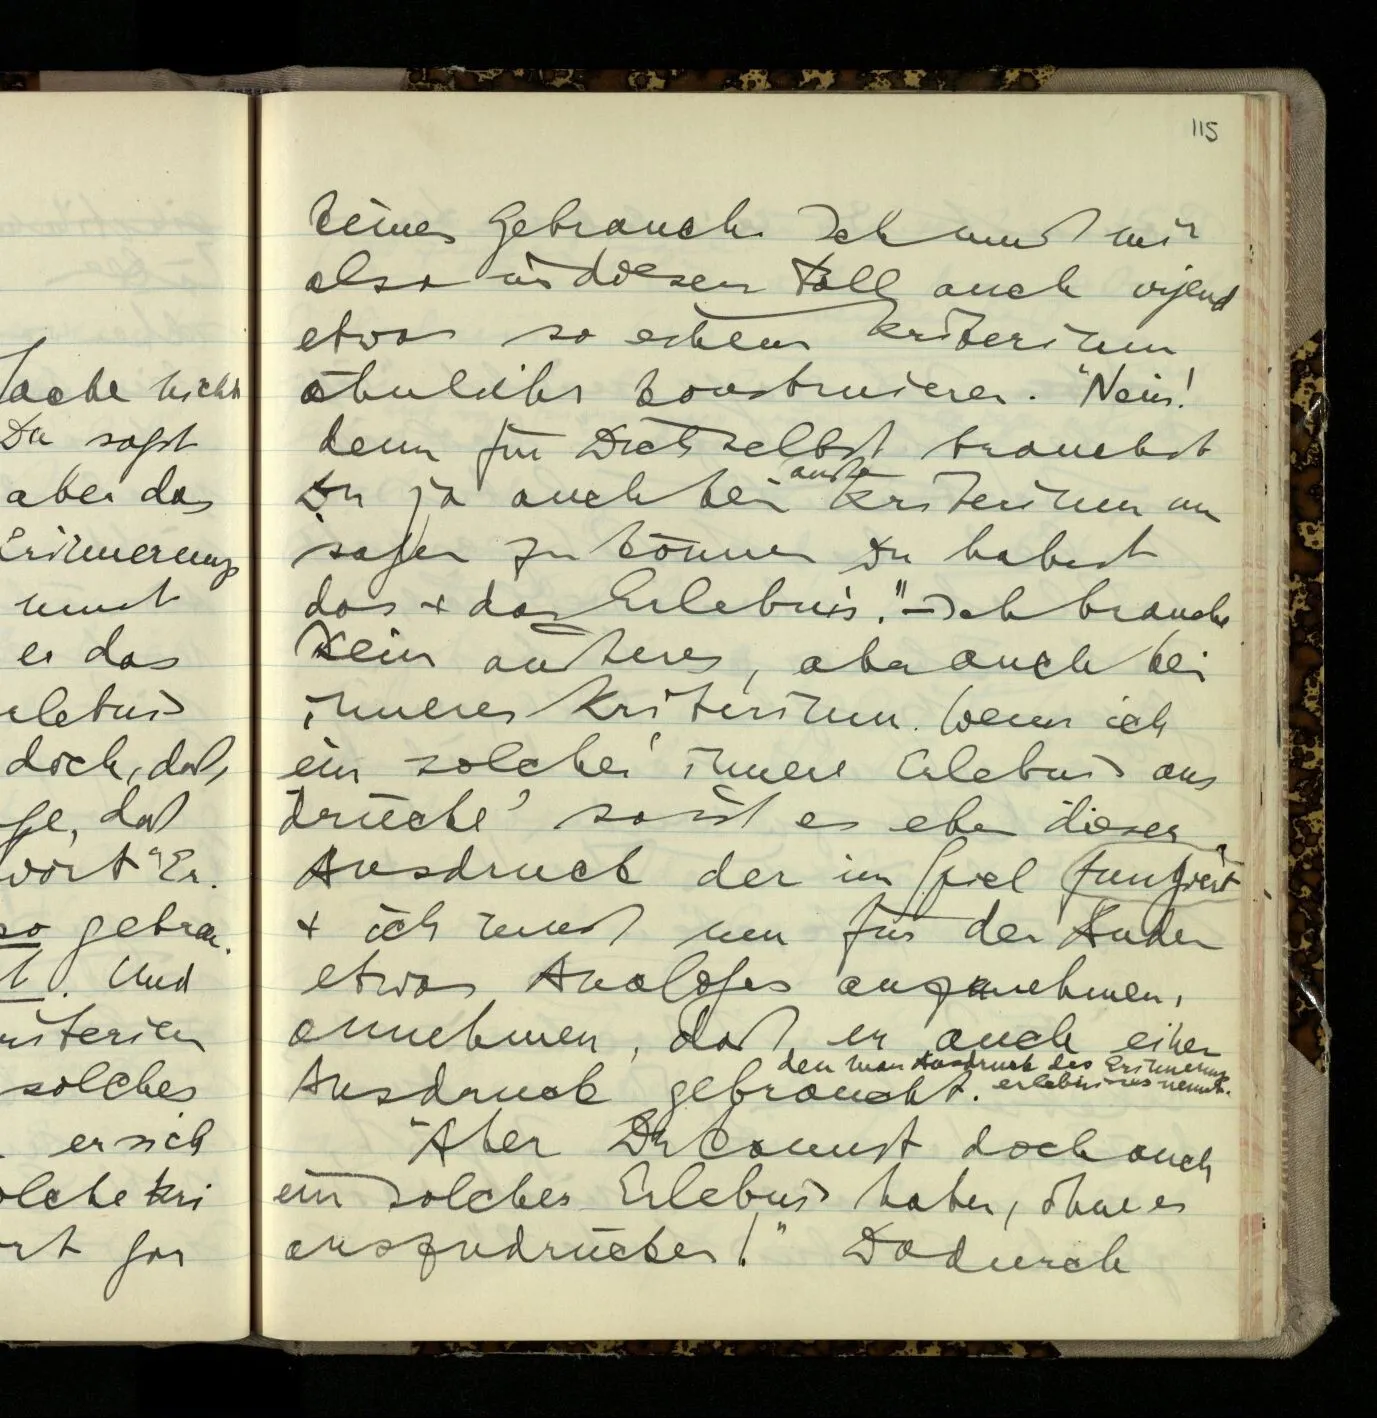 115
keinen Gebrauch. Ich muß mir
also in diesem Fall auch irgend
etwas so einem Kriterium
ähnliches konstruieren. "Nein!
denn für Dich selbst brauchst
Du ja auch kein Kriterium um
sagen zu können Du habest
das + das Erlebnis." – Ich brauche
kein anderes, aber auch kein
inneres Kriterium. Wenn ich
ein solches 'innere Erlebnis aus
drücke' so ist es eben dieser
Ausdruck der im Spiel fungiert
+ ich muß nun für den Andern
etwas Analoges annehmen,
annehmen, daß er auch einen
den man Ausdruck des Erinnerungs
erlebnisses nennt.
Ausdruck gebraucht.
"Aber Du kannst doch auch
ein solches Erlebnis haben, ohne es
auszudrücken!" Dadurch
ache nicht
Du sagst
aber das
Erinnerungs
mußt
er das
rlebnis
doch, daß
ge, daß
wort "Er.
so gebrau.
t. Und
riterien
solches
er sich
olche Kri
rt gar